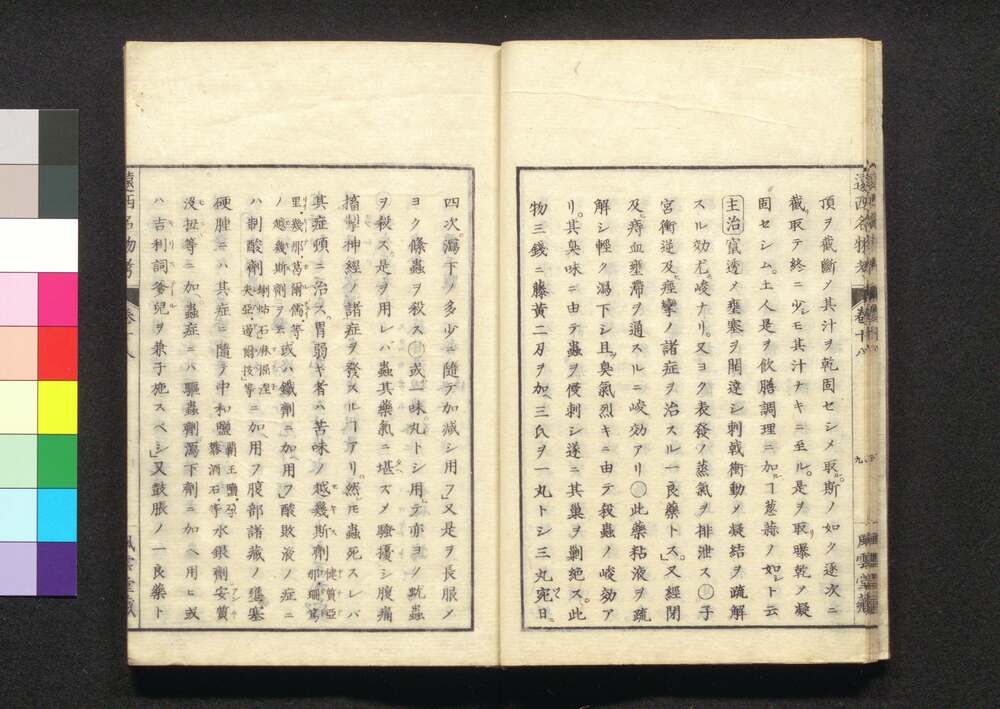 頂ヲ截斷ノ其汁ヲ乾固セシメ取ル。斯ノ如ク逐次ニ
截取テ終ニ少シモ其汁ナキニ至ル。是ヲ取リ曝乾ヲ凝
固セシム。土人是ヲ飮膳調理ニ加フヿ葱蒜ノ如シト云
主治 竄透メ壅塞ヲ開達シ刺戟衝動メ凝結ヲ疏解
スル効尤峻ナリ。又ヨク表發ノ蒸氣ヲ排泄ス〇子
宮衝逆及ビ痙攣ノ諸症ヲ治スル一良藥トス。」又經閉
及ビ痔血壅滞ヲ通スルニ峻効アリ〇此藥粘液ヲ疏
解シ輕ク瀉下シ且ツ臭氣烈キニ由テ殺蟲ノ峻効ア
リ。其臭味ニ由テ蟲ヲ侵刺シ遂ニ其巢ヲ剿絶ス。此
物三錢ニ藤黃二刃ヲ加ヘ三氏ヲ一丸トシ三丸宛日ニ
遠西名物考
卷十八
風雲堂藏
四次。瀉下ノ多少ニ隨テ加減シ用フ」又是ヲ長服ノ
ヨク條蟲ヲ殺ス〇或一味丸トシ用テ亦ヨク蚘蟲
ヲ殺ス。是ヲ用レバ蟲其藥氣ニ堪ズメ騷擾シ腹痛
搐掣神經ノ諸症ヲ發スルヿアリ。然レモ蟲死スレバ
其症頓ニ治ス。胃弱キ者ハ苦味ノ越幾斯劑
里・幾那・葛爾儒等ノ越幾斯劑ヲ云 或ハ鐵劑ニ加ヘ用フ」酸敗液ノ症ニ
ハ制酸劑 等ニ加ヘ用フ腹部諸藏ノ壅塞
硬腫ニハ其症ニ隨テ中和鹽 等水銀劑安質
没扭等ニ加ヘ蟲症ニハ驅蟲劑瀉下劑ニ加ヘ用ヒ或
ハ吉利詞篤兒ヲ兼子施スベシ」又鼓脹ノ一良藥ト